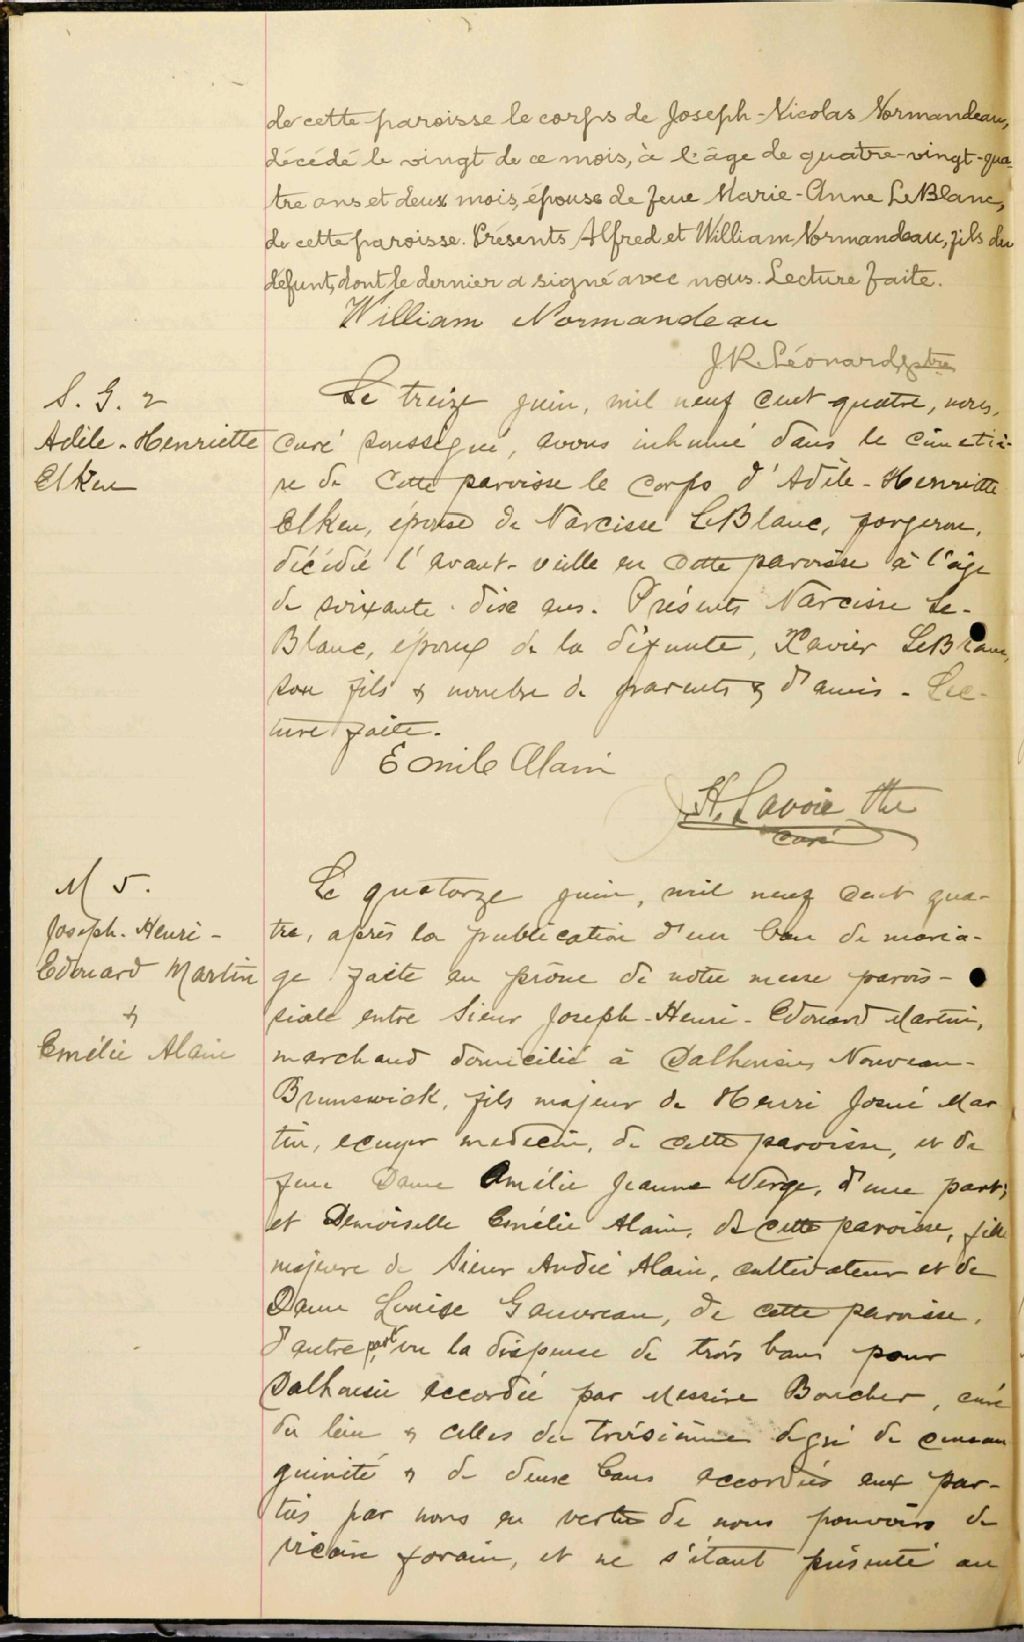 de cette paroisse le corps de Joseph-Nicolas Normandeau,
décédé le vingt de ce mois, à l'âge de quatre-vingt-qua-
tre ans et deux mois, épouse de feue Marie-Anne LeBlanc,
de cette paroisse. Présents Alfred et William Normandeau, fils du
défunt, dont le dernier a signé avec nous. Lecture faite.
William Normandeau
J.R. Léonard, ptre
S. G. 2
Adèle-Henriette
Elken
Le treize juin, mil neuf cent quatre, nous,
curé soussigné, avons inhumé dans le cimetiè-
re de cette paroisse le corps d'Adèle-Henriette
Elken, épouse de Narcisse LeBlanc, forgeron,
décédée l'avant-veille en cette paroisse à l'âge
de soixante-dix ans. Présents Narcisse Le-
Blanc, époux de la défunte, Xavier LeBlanc,
son fils & nombre de parents & d'amis. Lec-
ture faite.
Emile Alain
H. Lavoie Ptre
curé
M 5.
Joseph-Henri-
Edouard Martin
&
Emélie Alain
Le quatorze juin, mil neuf cent qua-
tre, après la publication d'un ban de maria-
ge faite au prône de notre messe parois-
siale entre Sieur Joseph-Henri-Edouard Martin,
marchand domicilié à Dalhousie, Nouveau-
Brunswick, fils majeur de Henri Josué Mar
tin, ecuyer medecin, de cette paroisse, et de
feue Dame Amélie Jeanne Verge, d'une part;
et Demoiselle Emélie Alain, de cette paroisse, fille
majeure de Sieur André Alain, cultivateur et de
Dame Louise Gauvreau, de cette paroisse,
d'autre part, vu la dispense de trois bans pour
Dalhousie accordée par Messire Boucher, curé
du lieu & celles du troisième degré de consan
guinité & de deux bans accordés aux par-
ties par nous en vertu de nous pouvoirs de
vicaire forain, et ne s'étant présenté au